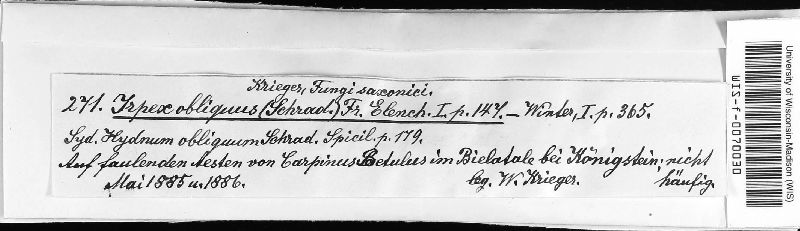 Krieger, Fungi saxonici.
271. Irpex obliquus (Schrad.) Fr. Elench. I. p. 147. – Winter, I. p. 365.
Syd. Hydnum obliquum Schrad. Spicil. p. 179.
Auf faulenden Aesten von Carpinus Betulus im Bielatale bei Königstein, nicht häufig.
Mai 1885 u. 1886. leg. W. Krieger.
University of Wisconsin-Madison (WIS)
WIS-f-0070030